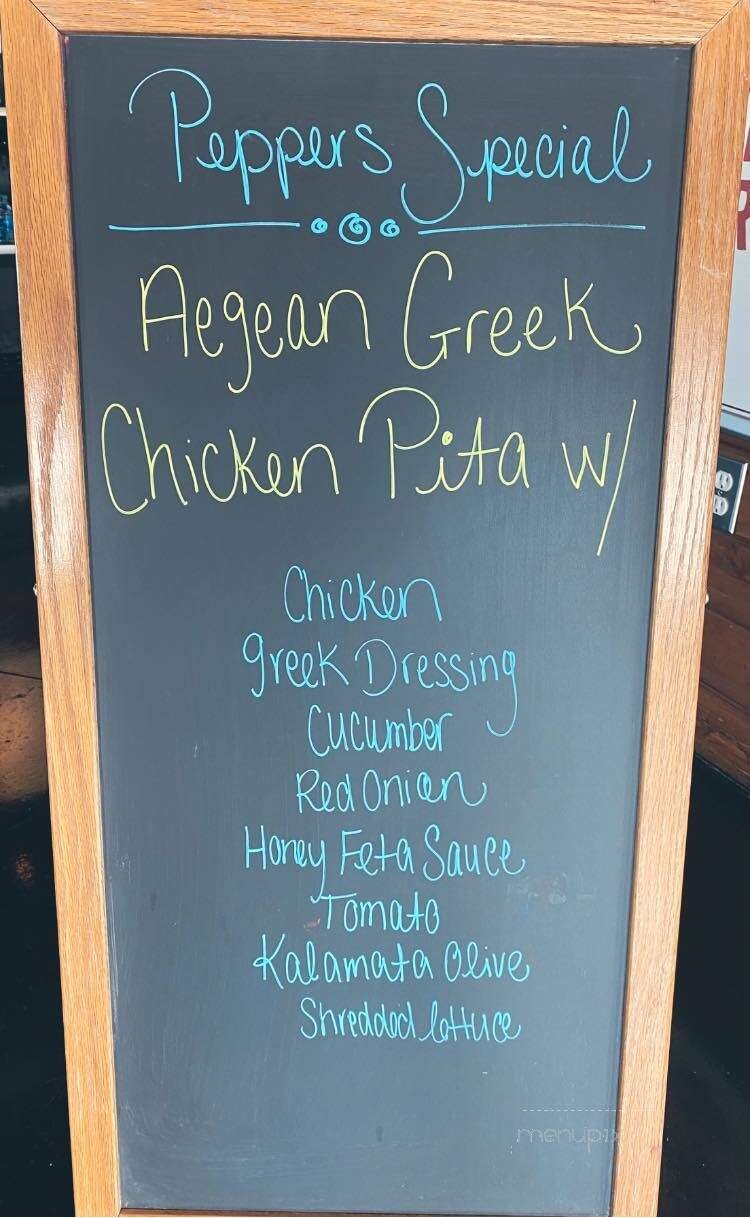 Peppers Special
Aegean Greek
Chicken Pita w/
Chicken
Greek Dressing
Cucumber
Red Onion
Honey Feta Sauce
Tomato
Kalamata Olive
Shredded lettuce
menupix